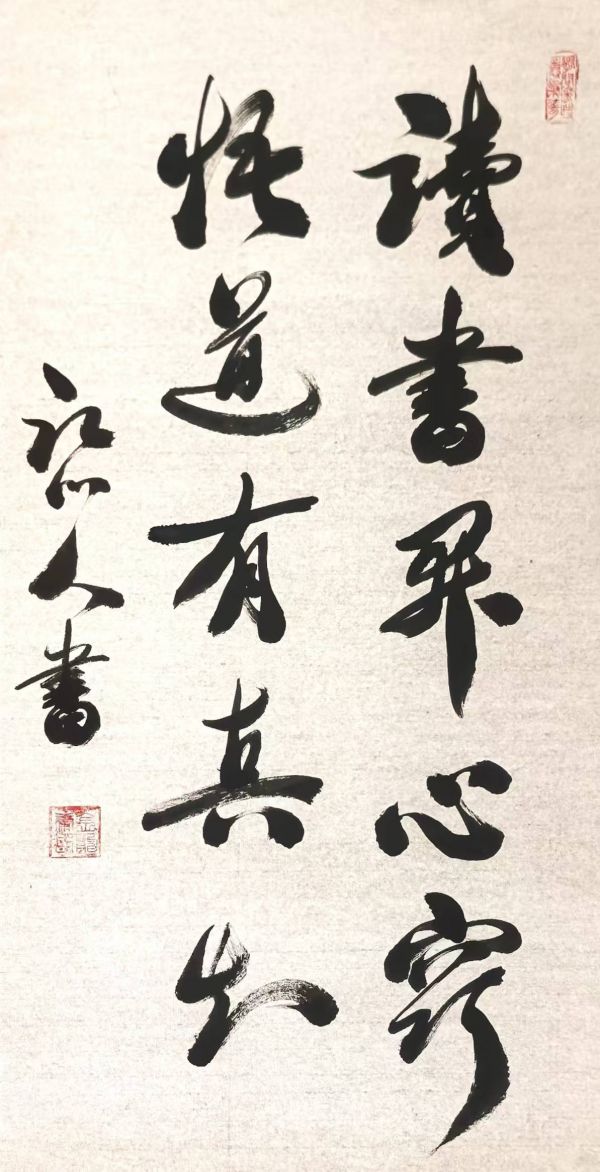 讀書開心竅
悟道有真知
山人書